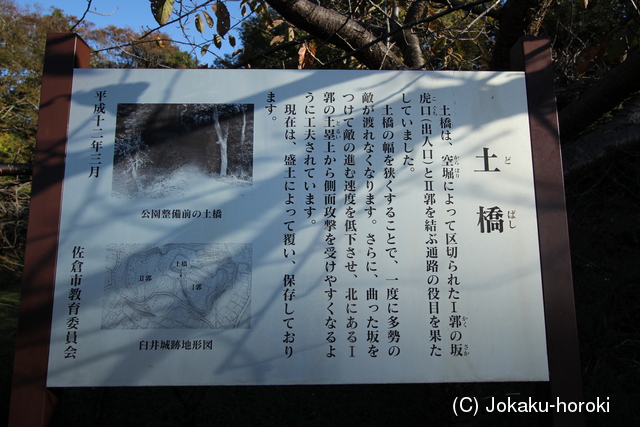 土橋
どばし
土橋は、空堀によって区切られたⅠ郭の坂
からほり
かく
さか
虎口（出入口）とⅡ郭を結ぶ通路の役目を果た
こぐち
していました。
土橋の幅を狭くすることで、一度に多勢の
敵が渡れなくなります。さらに、曲った坂を
つけて敵の進む速度を低下させ、北にあるⅠ
郭の土塁上から側面攻撃を受けやすくなるよ
うに工夫されています。
現在は、盛土によって覆い、保存しており
ます。
公園整備前の土橋
Ⅱ郭
土橋
Ⅰ郭
臼井城跡地形図
平成十二年三月
佐倉市教育委員会
(C) Jokaku-horoki